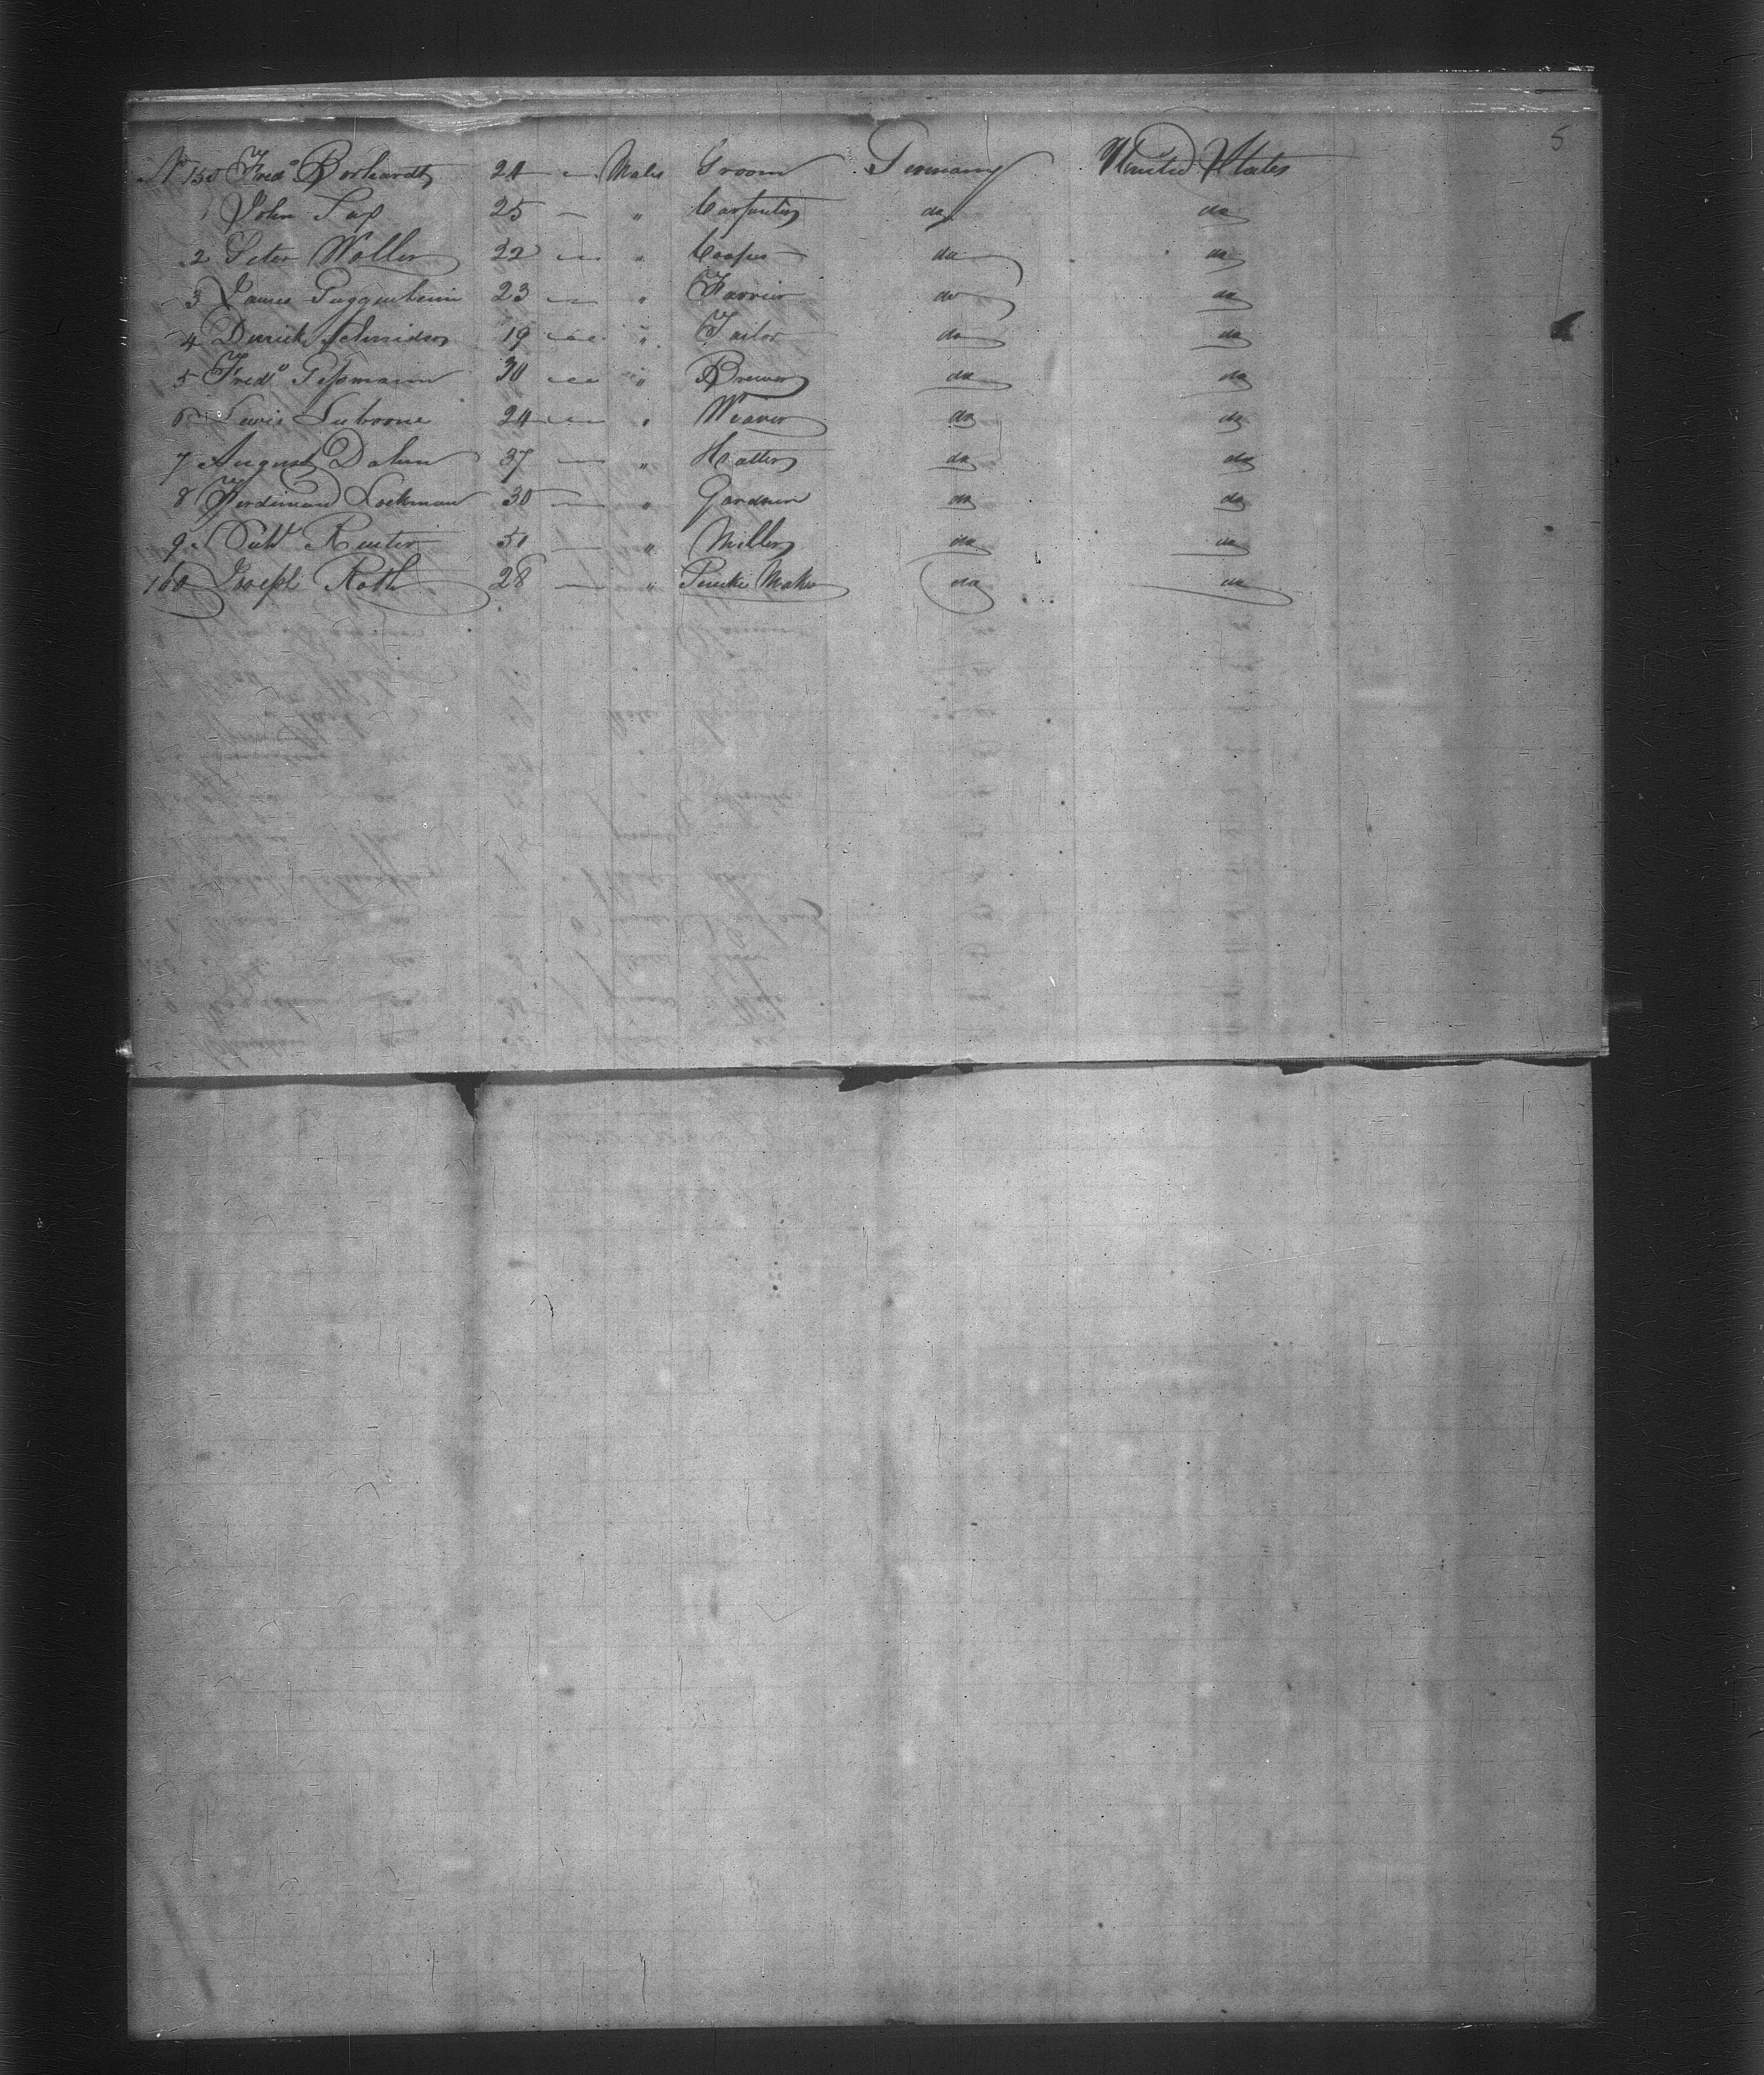 5
No 150 Fredk Borhardt 24 Males Groom Germany United States
1 John Sap 25 " Carpenter do do
2 Peter Woller 22 " Cooper do do
3 James Guggenheim 23 " Farrier do do
4 Schmidson 19 " Tailor do do
5 Fredk Gessmann 30 " Brewer do do
6 Lewis Lubrone 24 " Weaver do do
7 August Dahm 37 " Hatter do do
8 Ferdinand Lockman 30 " Gardner do do
9 Reuter 51 " Miller do do
160 Joseph Roth 28 " Maker do do